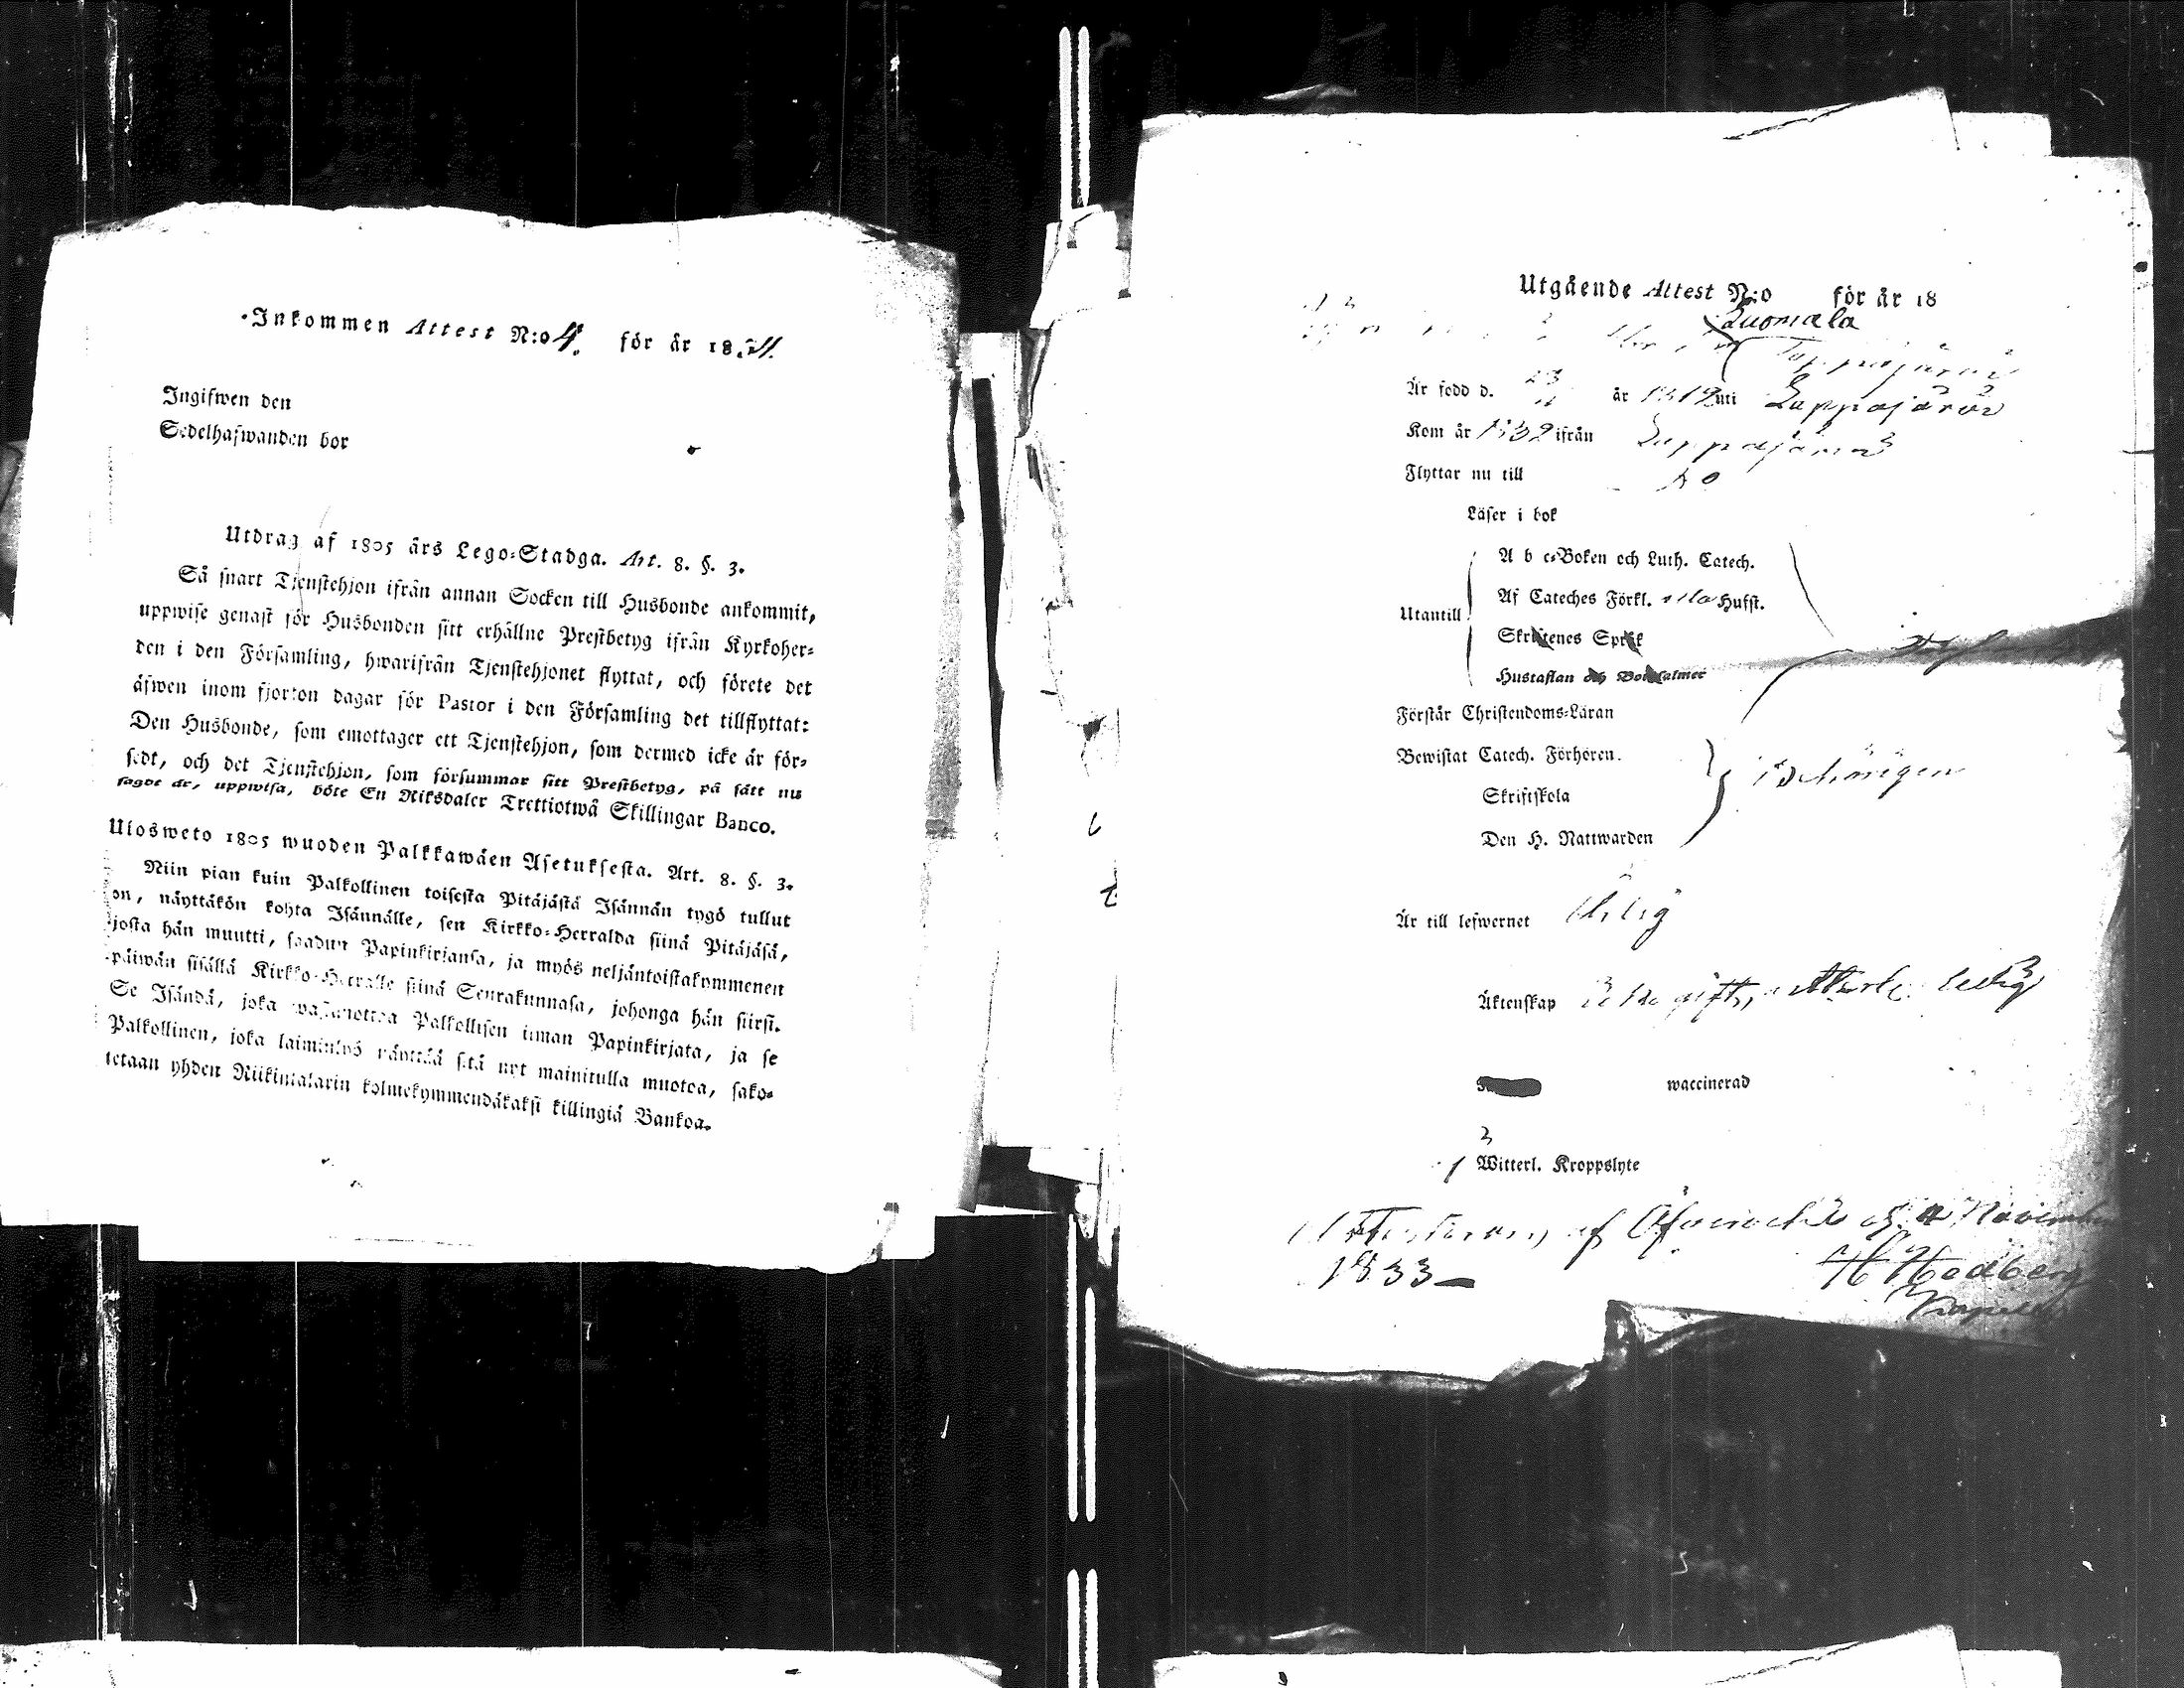 Inkommen Attest N:o 4. för år 1834.
Ingifwen den
Sedelhafwanden bor
Utdrag af 1805 års Lego-Stadga. Art. 8. §. 3.
Så snart Tjenstehjon ifrån annan Socken till Husbonde ankommit,
uppwise genast för Husbonden sitt erhållne Prestbetyg ifrån Kyrkoher-
den i den Församling, hwarifrån Tjenstehjonet flyttat, och förete det
äfwen inom fjorton dagar för Pastor i den Församling det tillflyttat:
Den Husbonde, som emottager ett Tjenstehjon, som dermed icke är för-
sedt, och det Tjenstehjon, som försummar sitt Prestbetyg, på sätt nu
sagdt är, uppwisa, böte En Riksdaler Trettiotwå Skillingar Banco.
Ulosweto 1805 wuoden Palkkawäen Asetuksesta. Art. 8. §. 3.
Niin pian kuin Palkollinen toisesta Pitäjästä Isännän tygö tullut
on, näyttäkön kohta Isännälle, sen Kirkko-Herralda siinä Pitäjäsä,
josta hän muutti, saadun Papinkirjansa, ja myös neljäntoistakymmenen
päiwän sisällä Kirkko-Herralle siinä Seurakunnasa, johonga hän siirsi.
Se Isändä, joka wastanottaa Palkollisen ilman Papinkirjata, ja se
Palkollinen, joka laiminlyö näyttää sitä nyt mainitulla muotoa, sako-
tetaan yhden Riikintalarin kolmekymmendäkaksi killingiä Bankoa.
Utgående Attest N:o för år 18
Luomala
Lappajärvi
Är född d. 23 år 1812 uti Lappajärvi
Kom år 1832 ifrån Lappajärvi
Flyttar nu till
Läser i bok
A b c-Boken och Luth. Catech.
Af Cateches Förkl. Husst.
Utantill
Skriftenes Språk
Hustaflan och Botpsalmer
Förstår Christendoms-Läran
Bewistat Catech. Förhören.
Skriftskola
Den H. Nattwarden
Är till lefwernet ärlig
Äktenskap ledig
waccinerad
Witterl. Kroppslyte
af d. 4 November
1833 H Hedberg